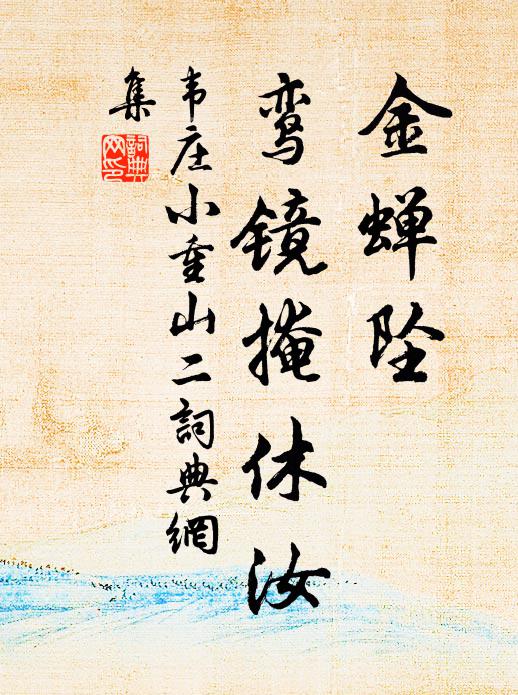 金蝉坠
鸾镜掩休汝
韦庄小重山二詞典網
集
詞典網印